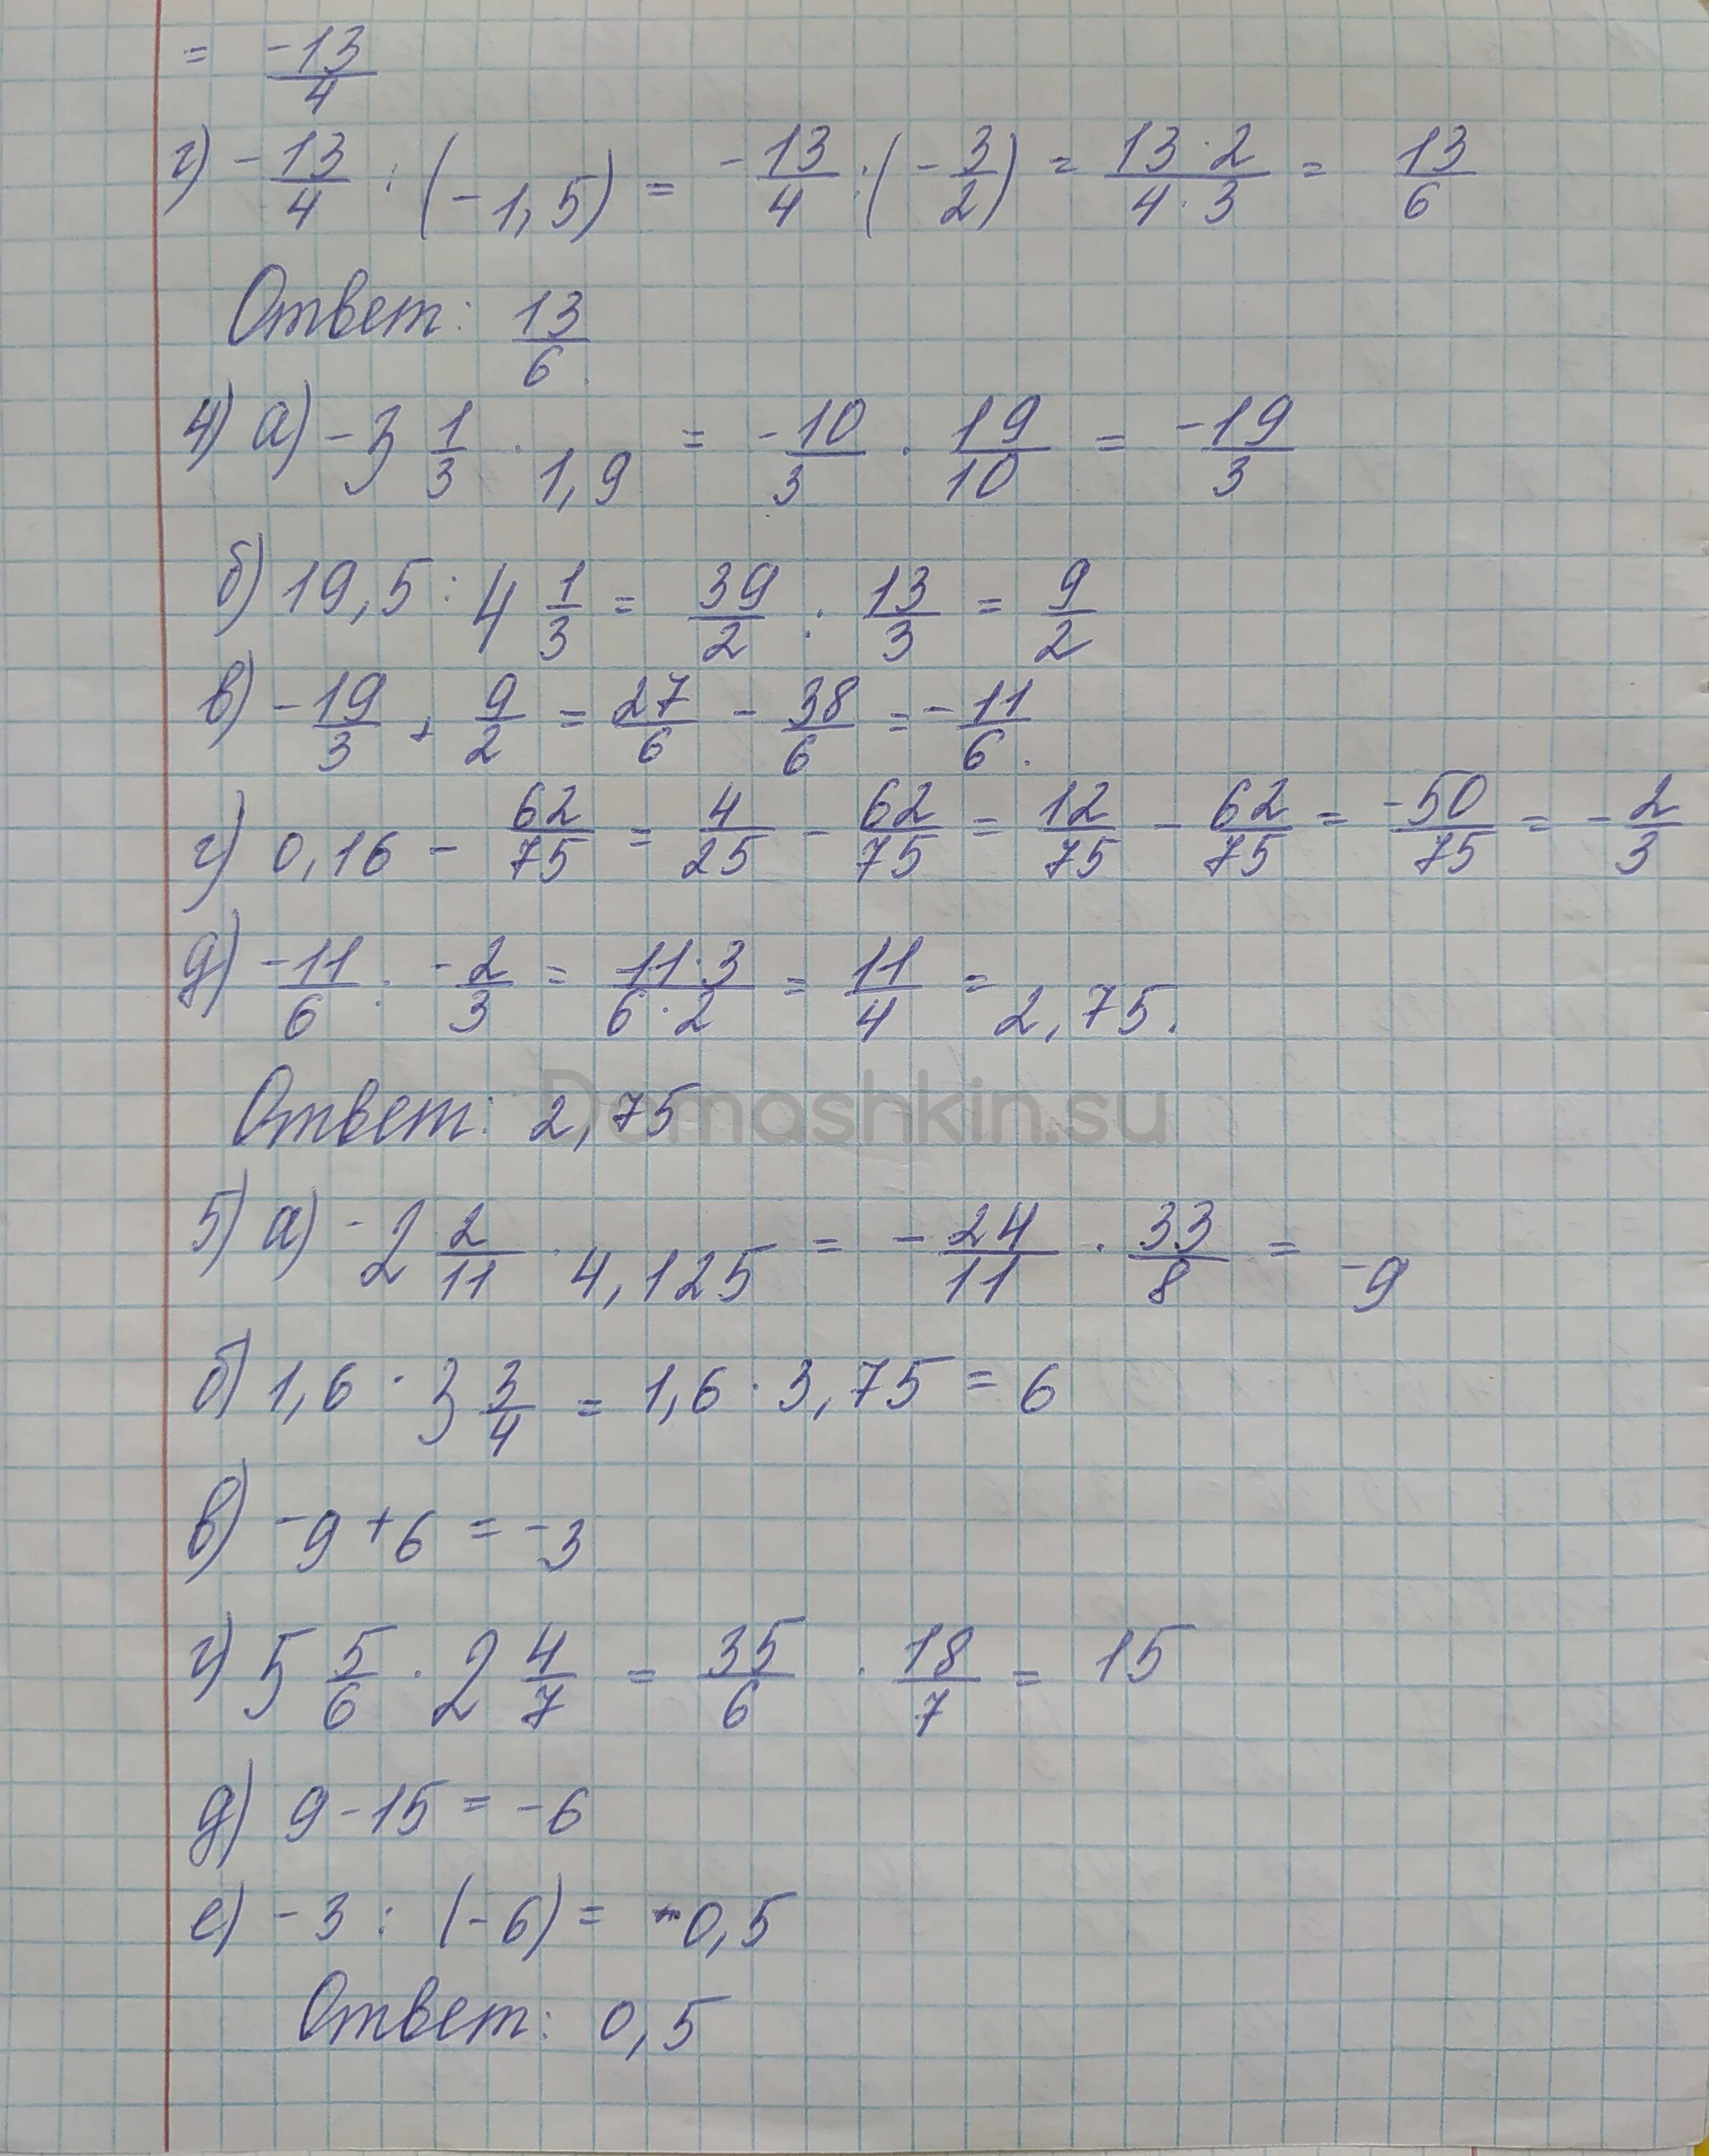 = -13/4
г) -13/4 : (-1,5) = -13/4 : (-3/2) = 13·2/4·3 = 13/6
Ответ: 13/6.
4) а) -3 1/3 · 1,9 = -10/3 · 19/10 = -19/3
б) 19,5 : 4 1/3 = 39/2 : 13/3 = 9/2
в) -19/3 + 9/2 = 27/6 - 38/6 = -11/6.
г) 0,16 - 62/75 = 4/25 - 62/75 = 12/75 - 62/75 = -50/75 = -2/3
д) -11/6 : -2/3 = 11·3/6·2 = 11/4 = 2,75.
Ответ: 2,75
Domashkin.su
5) а) -2 2/11 · 4,125 = -24/11 · 33/8 = -9
б) 1,6 · 3 3/4 = 1,6 · 3,75 = 6
в) -9 + 6 = -3
г) 5 5/6 · 2 4/7 = 35/6 · 18/7 = 15
д) 9 - 15 = -6
е) -3 : (-6) = 0,5
Ответ: 0,5